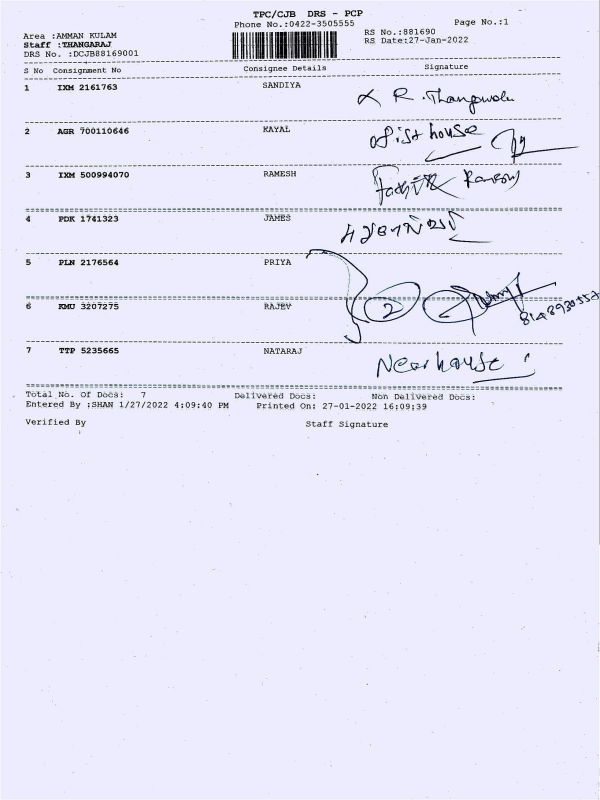 TPC/CJB DRS - PCP
Phone No.:0422-3505555 Page No.:1
Area :AMMAN KULAM RS No.:881690
Staff :THANGARAJ RS Date:27-Jan-2022
DRS No. :DCJB88169001
S No Consignment No Consignee Details Signature
1 IXM 2161763 SANDIYA R.
2 AGR 700110646 KAYAL house
3 IXM 500994070 RAMESH
4 PDK 1741323 JAMES
5 PLN 2176564 PRIYA
2
6 KMU 3207275 RAJEV
7 TTP 5235665 NATARAJ Near house
Total No. Of Docs: 7 Delivered Docs: Non Delivered Docs:
Entered By :SHAN 1/27/2022 4:09:40 PM Printed On: 27-01-2022 16:09:39
Verified By Staff Signature